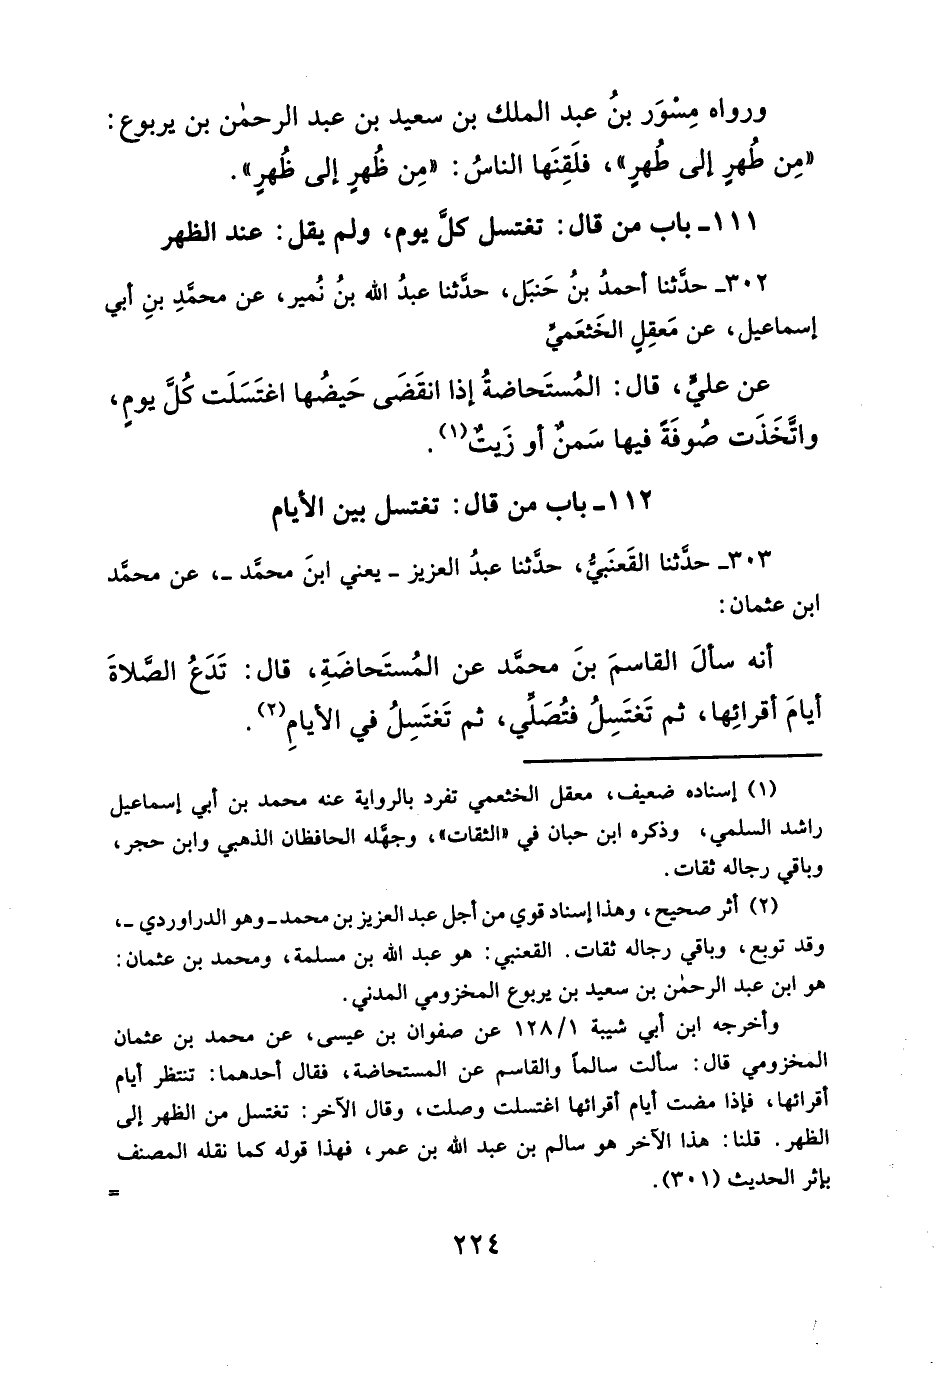 ورواه مِسْوَر بنُ عبد الملك بن سعيد بن عبد الرحمٰن بن يربوع:
«مِن طُهرٍ إلى طُهرٍ»، فلَقِنَها الناسُ: «مِن ظُهرٍ إلى ظُهرٍ».
١١١ـ باب من قال: تغتسل كلَّ يوم، ولم يقل: عند الظهر
٣٠٢ـ حدَّثنا أحمدُ بنُ حَنبَل، حدَّثنا عبدُ الله بنُ نُمير، عن محمَّدِ بنِ أبي
إسماعيل، عن مَعقِلٍ الخَثعَميِّ
عن عليٍّ، قال: المُستَحاضةُ إذا انقَضَى حَيضُها اغتَسَلَت كُلَّ يومٍ،
واتَّخَذَت صُوفَةً فيها سَمنٌ أو زَيتٌ(١).
١١٢ـ باب من قال: تغتسل بين الأيام
٣٠٣ـ حدَّثنا القَعنَبيُّ، حدَّثنا عبدُ العزيز ـ يعني ابنَ محمَّد ـ، عن محمَّد
ابن عثمان:
أنه سألَ القاسمَ بنَ محمَّد عن المُستَحاضَةِ، قال: تَدَعُ الصَّلاةَ
أيامَ أقرائِها، ثم تَغتَسِلُ فتُصَلِّي، ثم تَغتَسِلُ في الأيامِ(٢).
(١) إسناده ضعيف، معقل الخثعمي تفرد بالرواية عنه محمد بن أبي إسماعيل
راشد السلمي، وذكره ابن حبان في «الثقات»، وجهَّله الحافظان الذهبي وابن حجر،
وباقي رجاله ثقات.
(٢) أثر صحيح، وهذا إسناد قوي من أجل عبد العزيز بن محمد ـ وهو الدراوردي ـ،
وقد توبع، وباقي رجاله ثقات. القعنبي: هو عبد الله بن مسلمة، ومحمد بن عثمان:
هو ابن عبد الرحمٰن بن سعيد بن يربوع المخزومي المدني.
وأخرجه ابن أبي شيبة ١٢٨/١ عن صفوان بن عيسى، عن محمد بن عثمان
المخزومي قال: سألت سالماً والقاسم عن المستحاضة، فقال أحدهما: تنتظر أيام
أقرائها، فإذا مضت أيام أقرائها اغتسلت وصلت، وقال الآخر: تغتسل من الظهر إلى
الظهر. قلنا: هذا الآخر هو سالم بن عبد الله بن عمر، فهذا قوله كما نقله المصنف
بإثر الحديث (٣٠١).
=
٢٢٤